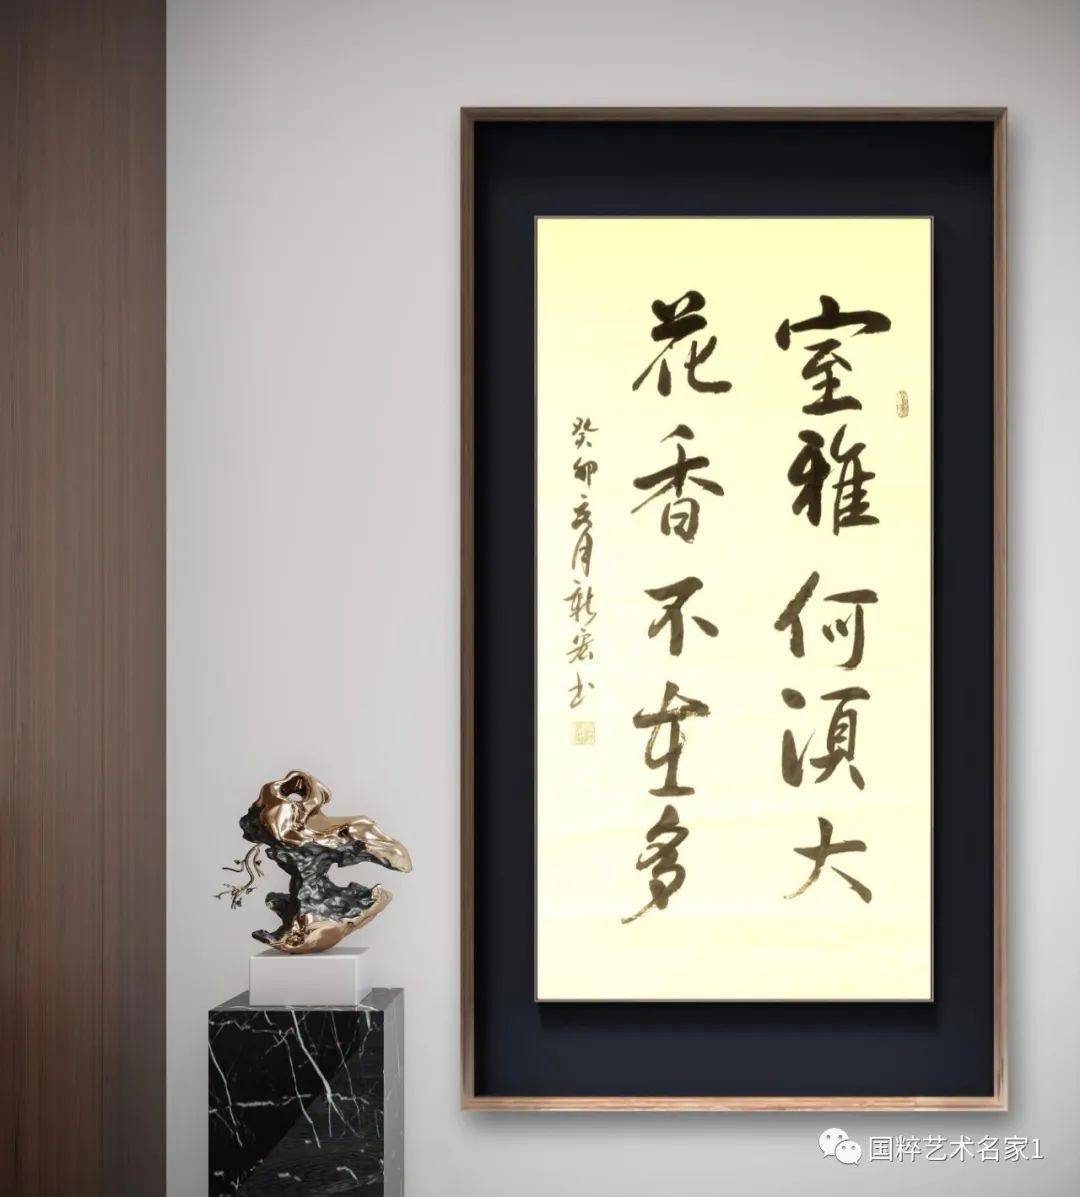 室雅何須大
花香不在多
癸卯亥月新宏书
国粹艺术名家1